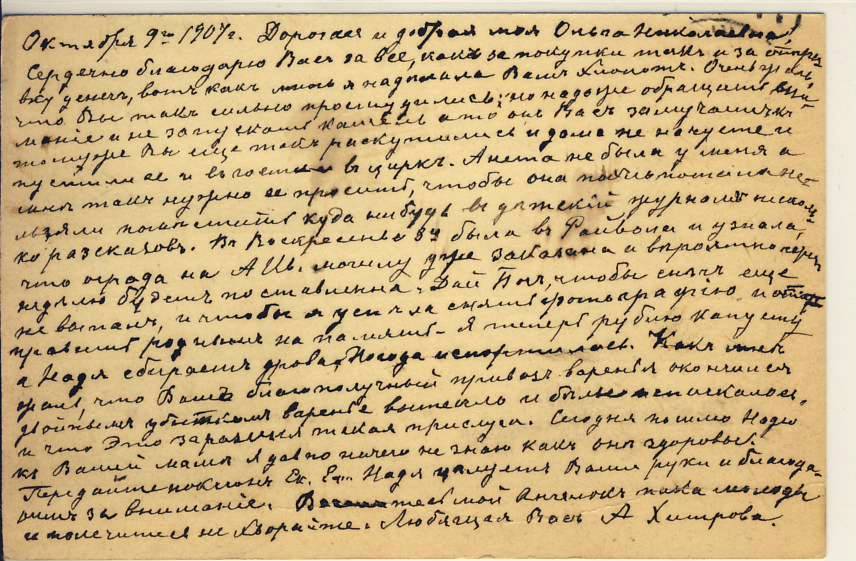 Октября 9го 1907г. Дорогая и добрая моя Ольга Николаевна,
Сердечно благодарю Васъ за все, какъ за покупки такъ и за отпра-
вку денегъ, вотъ какъ много я надѣлала Вамъ хлопотъ. Очень жаль,
что Вы такъ сильно простудились; но надо же обращать вни-
маніе и не запускать кашель а то онъ Васъ замучаетъ
Вы еще такъ раскутились и дома не на
пустили ее и въ гости въ циркъ. Анета не была у меня а
мнѣ такъ нужно ее просить, чтобы она не-
льзяли помѣстить куда нибудь въ дѣтскій журналъ несколь-
ко разсказовъ. Въ Воскресенье была въ Райвола и узнала,
что ограда на А Ив. могилу уже заказана и вѣроятно черезъ
недѣлю будетъ поставленна. Дай Богъ, чтобы снѣгъ еще
не выпалъ, и чтобы я успѣла снять фотографію и отпра-
править роднымъ на память. Я теперь рублю капусту
а Надя сбираетъ дрова. Погода испортилась. Какъ мнѣ
жаль, что Вашъ благополучный привозъ варенья окончился
двойнымъ убыткомъ варенье вытекло и бѣлье испачкалось,
и что это за разиня такая прислуга. Сегодня пошлю Надю
къ Вашей мамѣ я давно ничего не знаю какъ онѣ здоровы.
Передайте поклонъ Ек. Надя цѣлуетъ Ваши руки и благода-
ритъ за вниманіе. мой Ангелокъ пока молоды
и полечитесь не хворайте. Любящая Васъ А Хитрова.